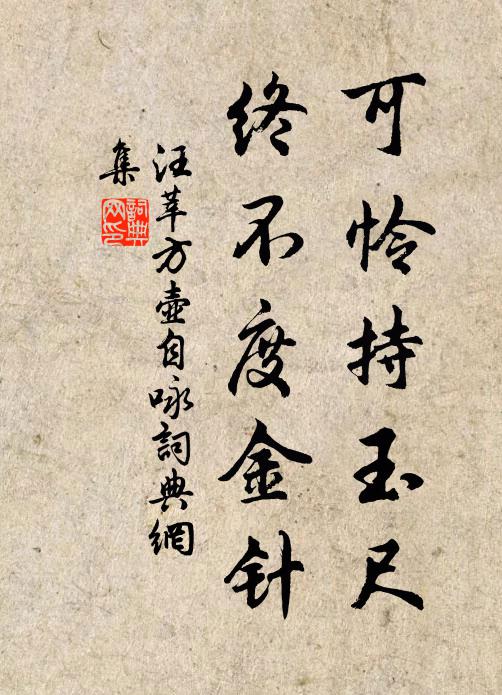 可怜持玉尺
终不度金针
汪莘方壶自咏詞典網
集
詞典
网印